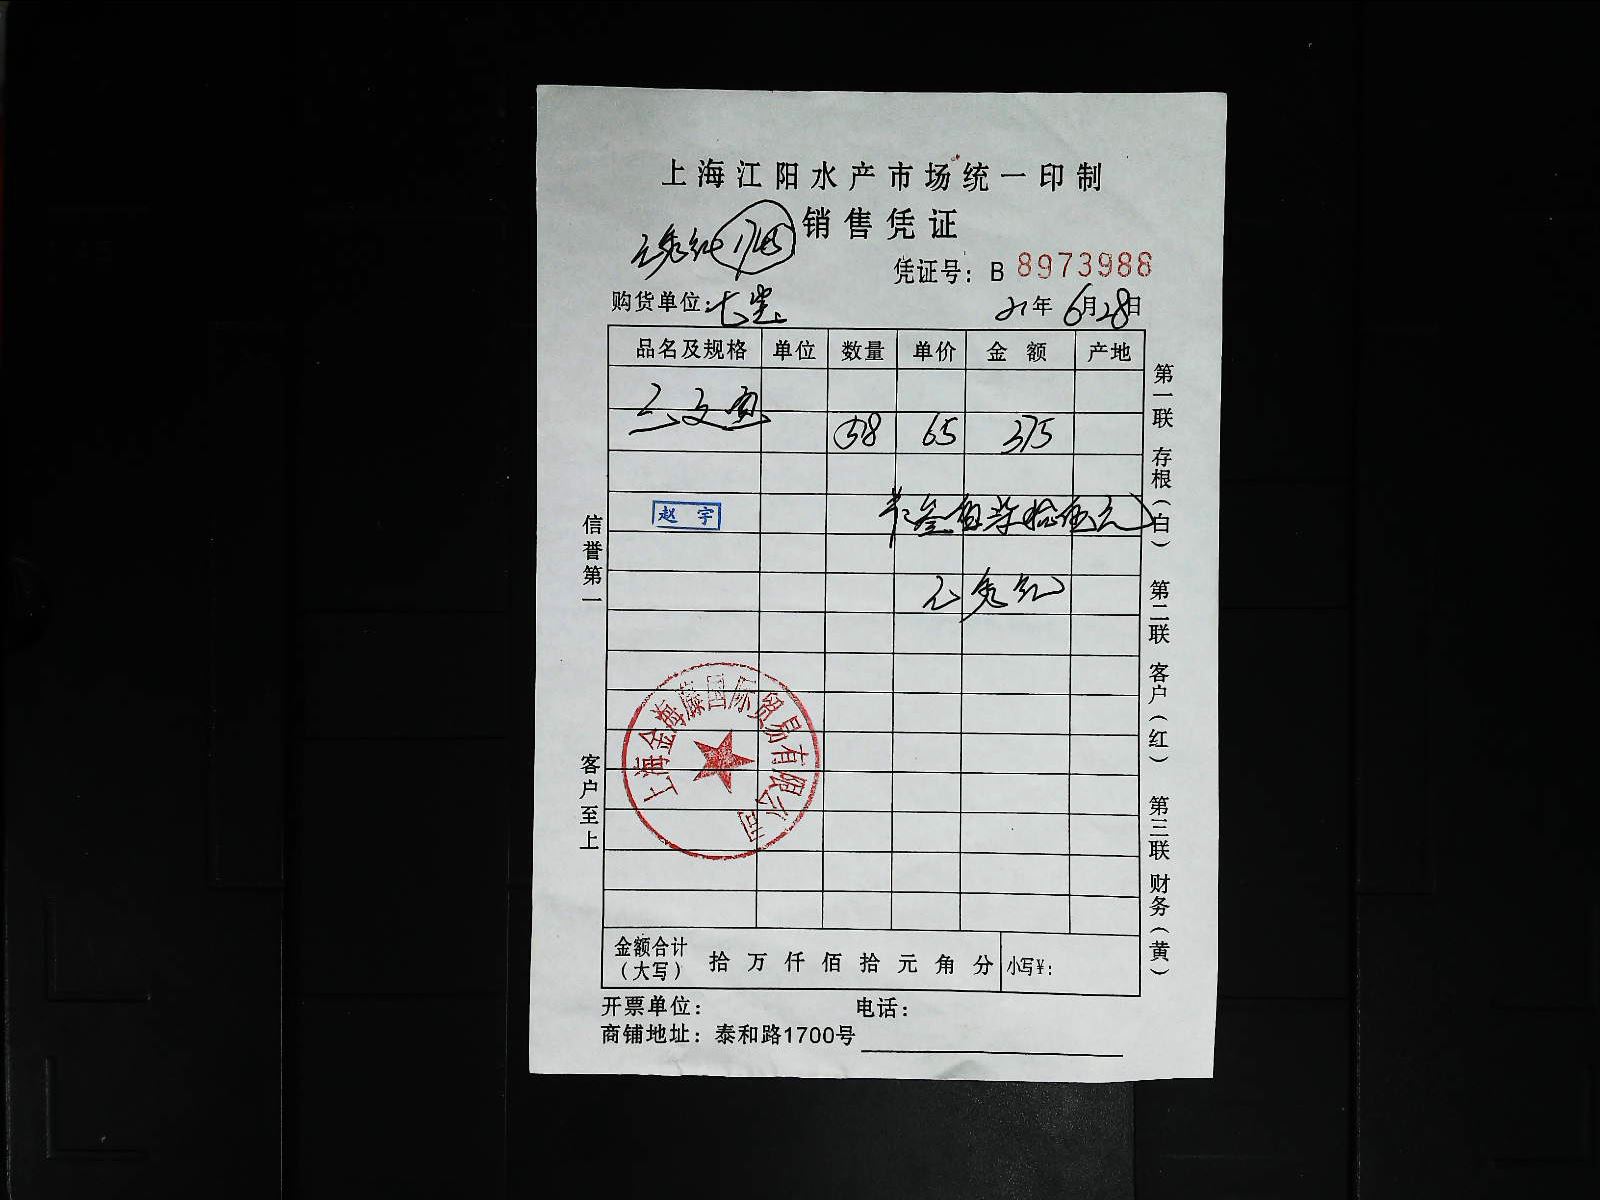 上海江阳水产市场统一印制
销售凭证
1745
凭证号：B 8973988
购货单位：
21年6月28日
品名及规格 单位 数量 单价 金额 产地
三文鱼 58 65 375
叁佰柒拾伍元
赵宇
信誉第一
客户至上
上海金海藤国际贸易有限公司
第一联 存根（白） 第二联 客户（红） 第三联 财务（黄）
金额合计（大写） 拾 万 仟 佰 拾 元 角 分 小写¥：
开票单位： 电话：
商铺地址：泰和路1700号